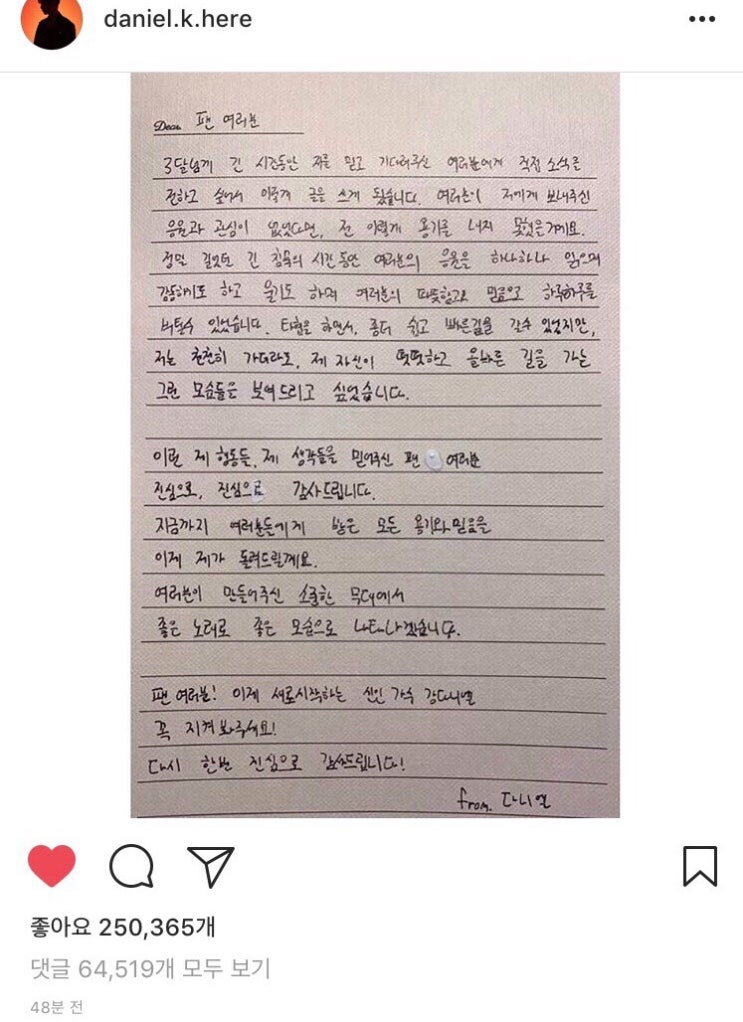 daniel.k.here
Dear 팬 여러분
3달넘게 긴 시간동안 저를 믿고 기다려주신 여러분에게 직접 소식을
전하고 싶어서 이렇게 글을 쓰게 됐습니다. 여러분이 저에게 보내주신
응원과 관심이 없었다면, 전 이렇게 용기를 내지 못했을거예요.
정말 길었던 긴 침묵의 시간동안 여러분의 응원을 하나하나 읽으며
감동하기도 하고 울기도 하며 여러분의 따뜻함과 믿음으로 하루하루를
버틸수 있었습니다. 타협을 하면서, 좀더 쉽고 빠른길을 갈수 있었지만,
저는 천천히 가더라도, 제 자신이 떳떳하고 올바른 길을 가는
그런 모습들을 보여드리고 싶었습니다.
이런 제 행동들, 제 생각들을 믿어주신 팬 여러분
진심으로, 진심으로 감사드립니다.
지금까지 여러분들에게 받은 모든 용기와 믿음을
이제 제가 돌려드릴게요.
여러분이 만들어주신 소중한 무대에서
좋은 노래로 좋은 모습으로 나타나겠습니다.
팬 여러분! 이제 새로시작하는 신인 가수 강다니엘
꼭 지켜봐주세요!
다시 한번 진심으로 감사드립니다!
from. 다니엘
좋아요 250,365개
댓글 64,519개 모두 보기
48분 전